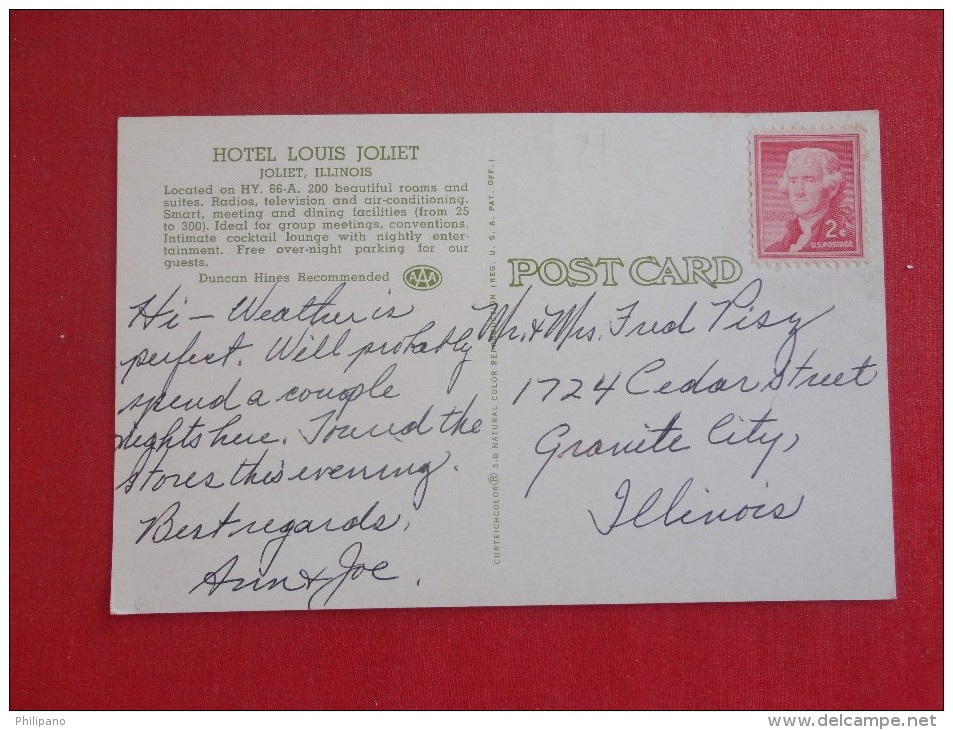 HOTEL LOUIS JOLIET
JOLIET, ILLINOIS
Located on HY. 66-A. 200 beautiful rooms and
suites. Radios, television and air-conditioning.
Smart, meeting and dining facilities (from 25
to 300). Ideal for group meetings, conventions.
Intimate cocktail lounge with nightly enter-
tainment. Free over-night parking for our
guests.
Duncan Hines Recommended AAA
Hi - Weather is
perfect. Will probably
spend a couple
nights here. Toured the
stores this evening.
Best regards,
Ann & Joe.
CURTEICHCOLOR® 3-D NATURAL COLOR REPRODUCTION (REG. U. S. A. PAT. OFF.)
POST CARD
2¢
U.S. POSTAGE
Mr. & Mrs. Fred Pisy
1724 Cedar Street
Granite City,
Illinois
Philipano
www.delcampe.net